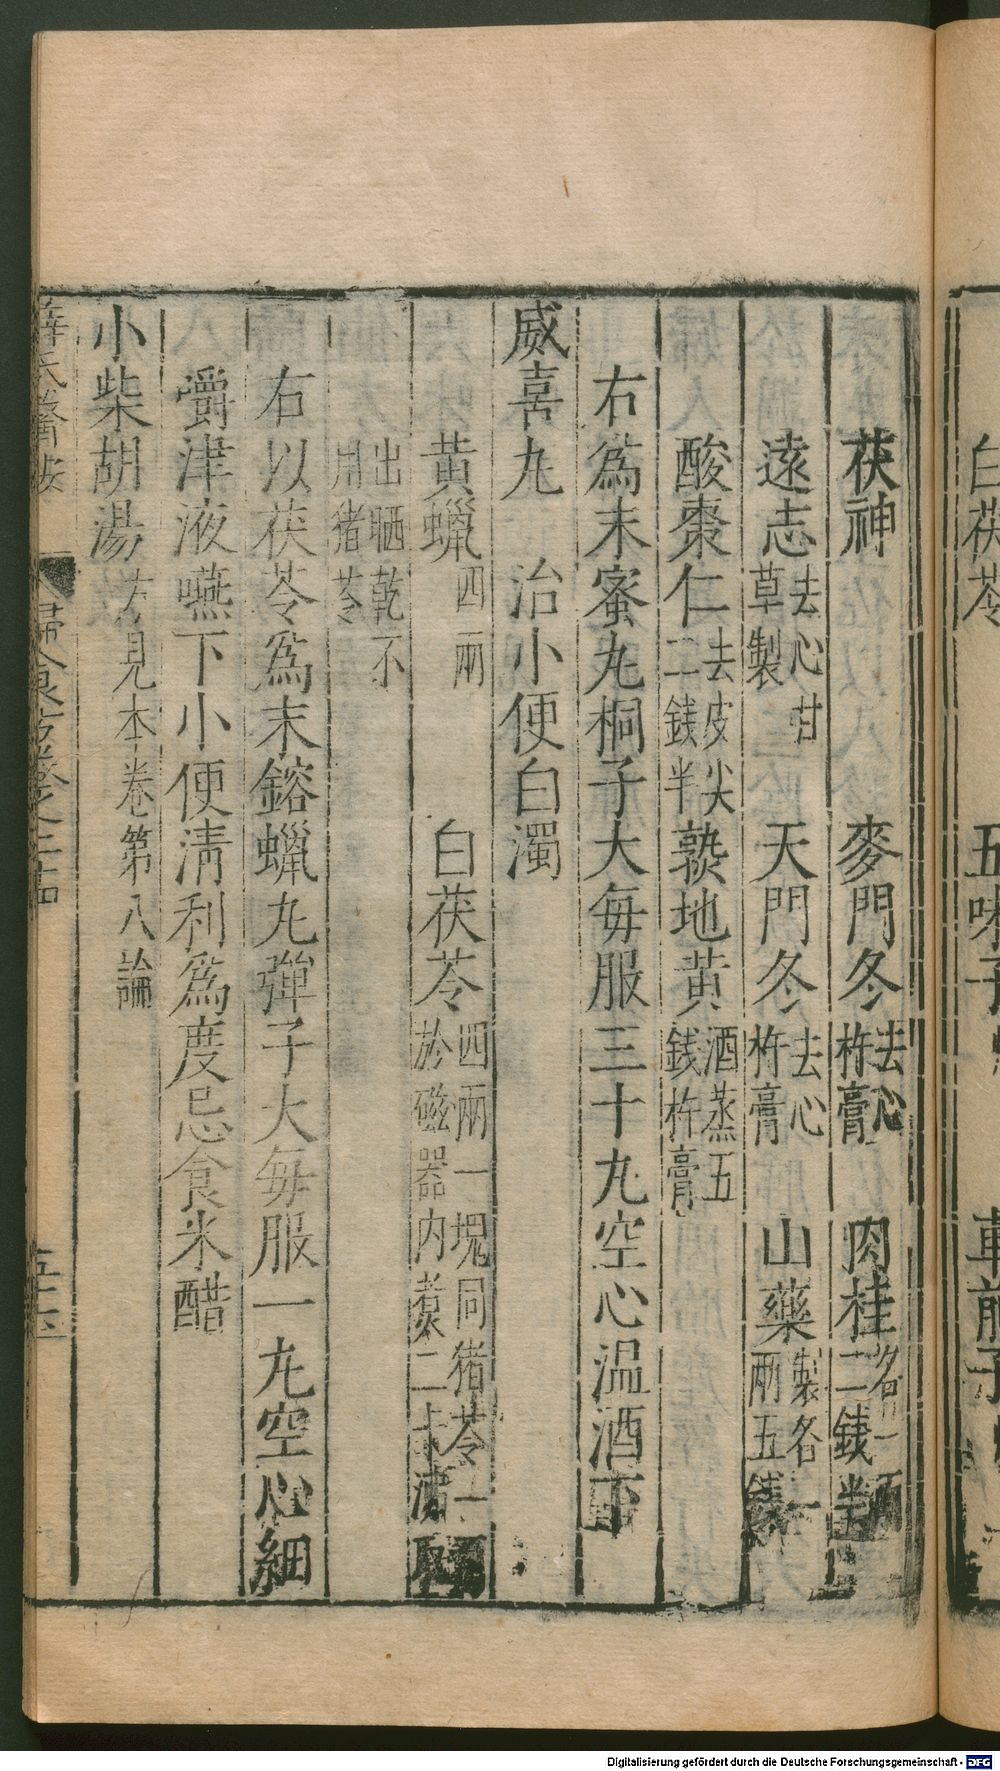 白茯苓 五味子 車前子
茯神 麥門冬去心杵膏 肉桂各一兩二錢半
遠志去心甘草製 天門冬去心杵膏 山藥製各一兩五錢
酸棗仁去皮尖二錢半 熟地黃酒蒸五錢杵膏
右為末蜜丸桐子大每服三十丸空心温酒下
威喜丸 治小便白濁
黄蠟四兩 白茯苓四兩一塊同猪苓一兩於磁器内煮二十沸取
出晒乾不用猪苓
右以茯苓為末鎔蠟丸彈子大每服一丸空心細
嚼津液嚥下小便清利為度忌食米醋
小柴胡湯方見本卷第八論
薛氏醫按 婦人良方卷之二十四